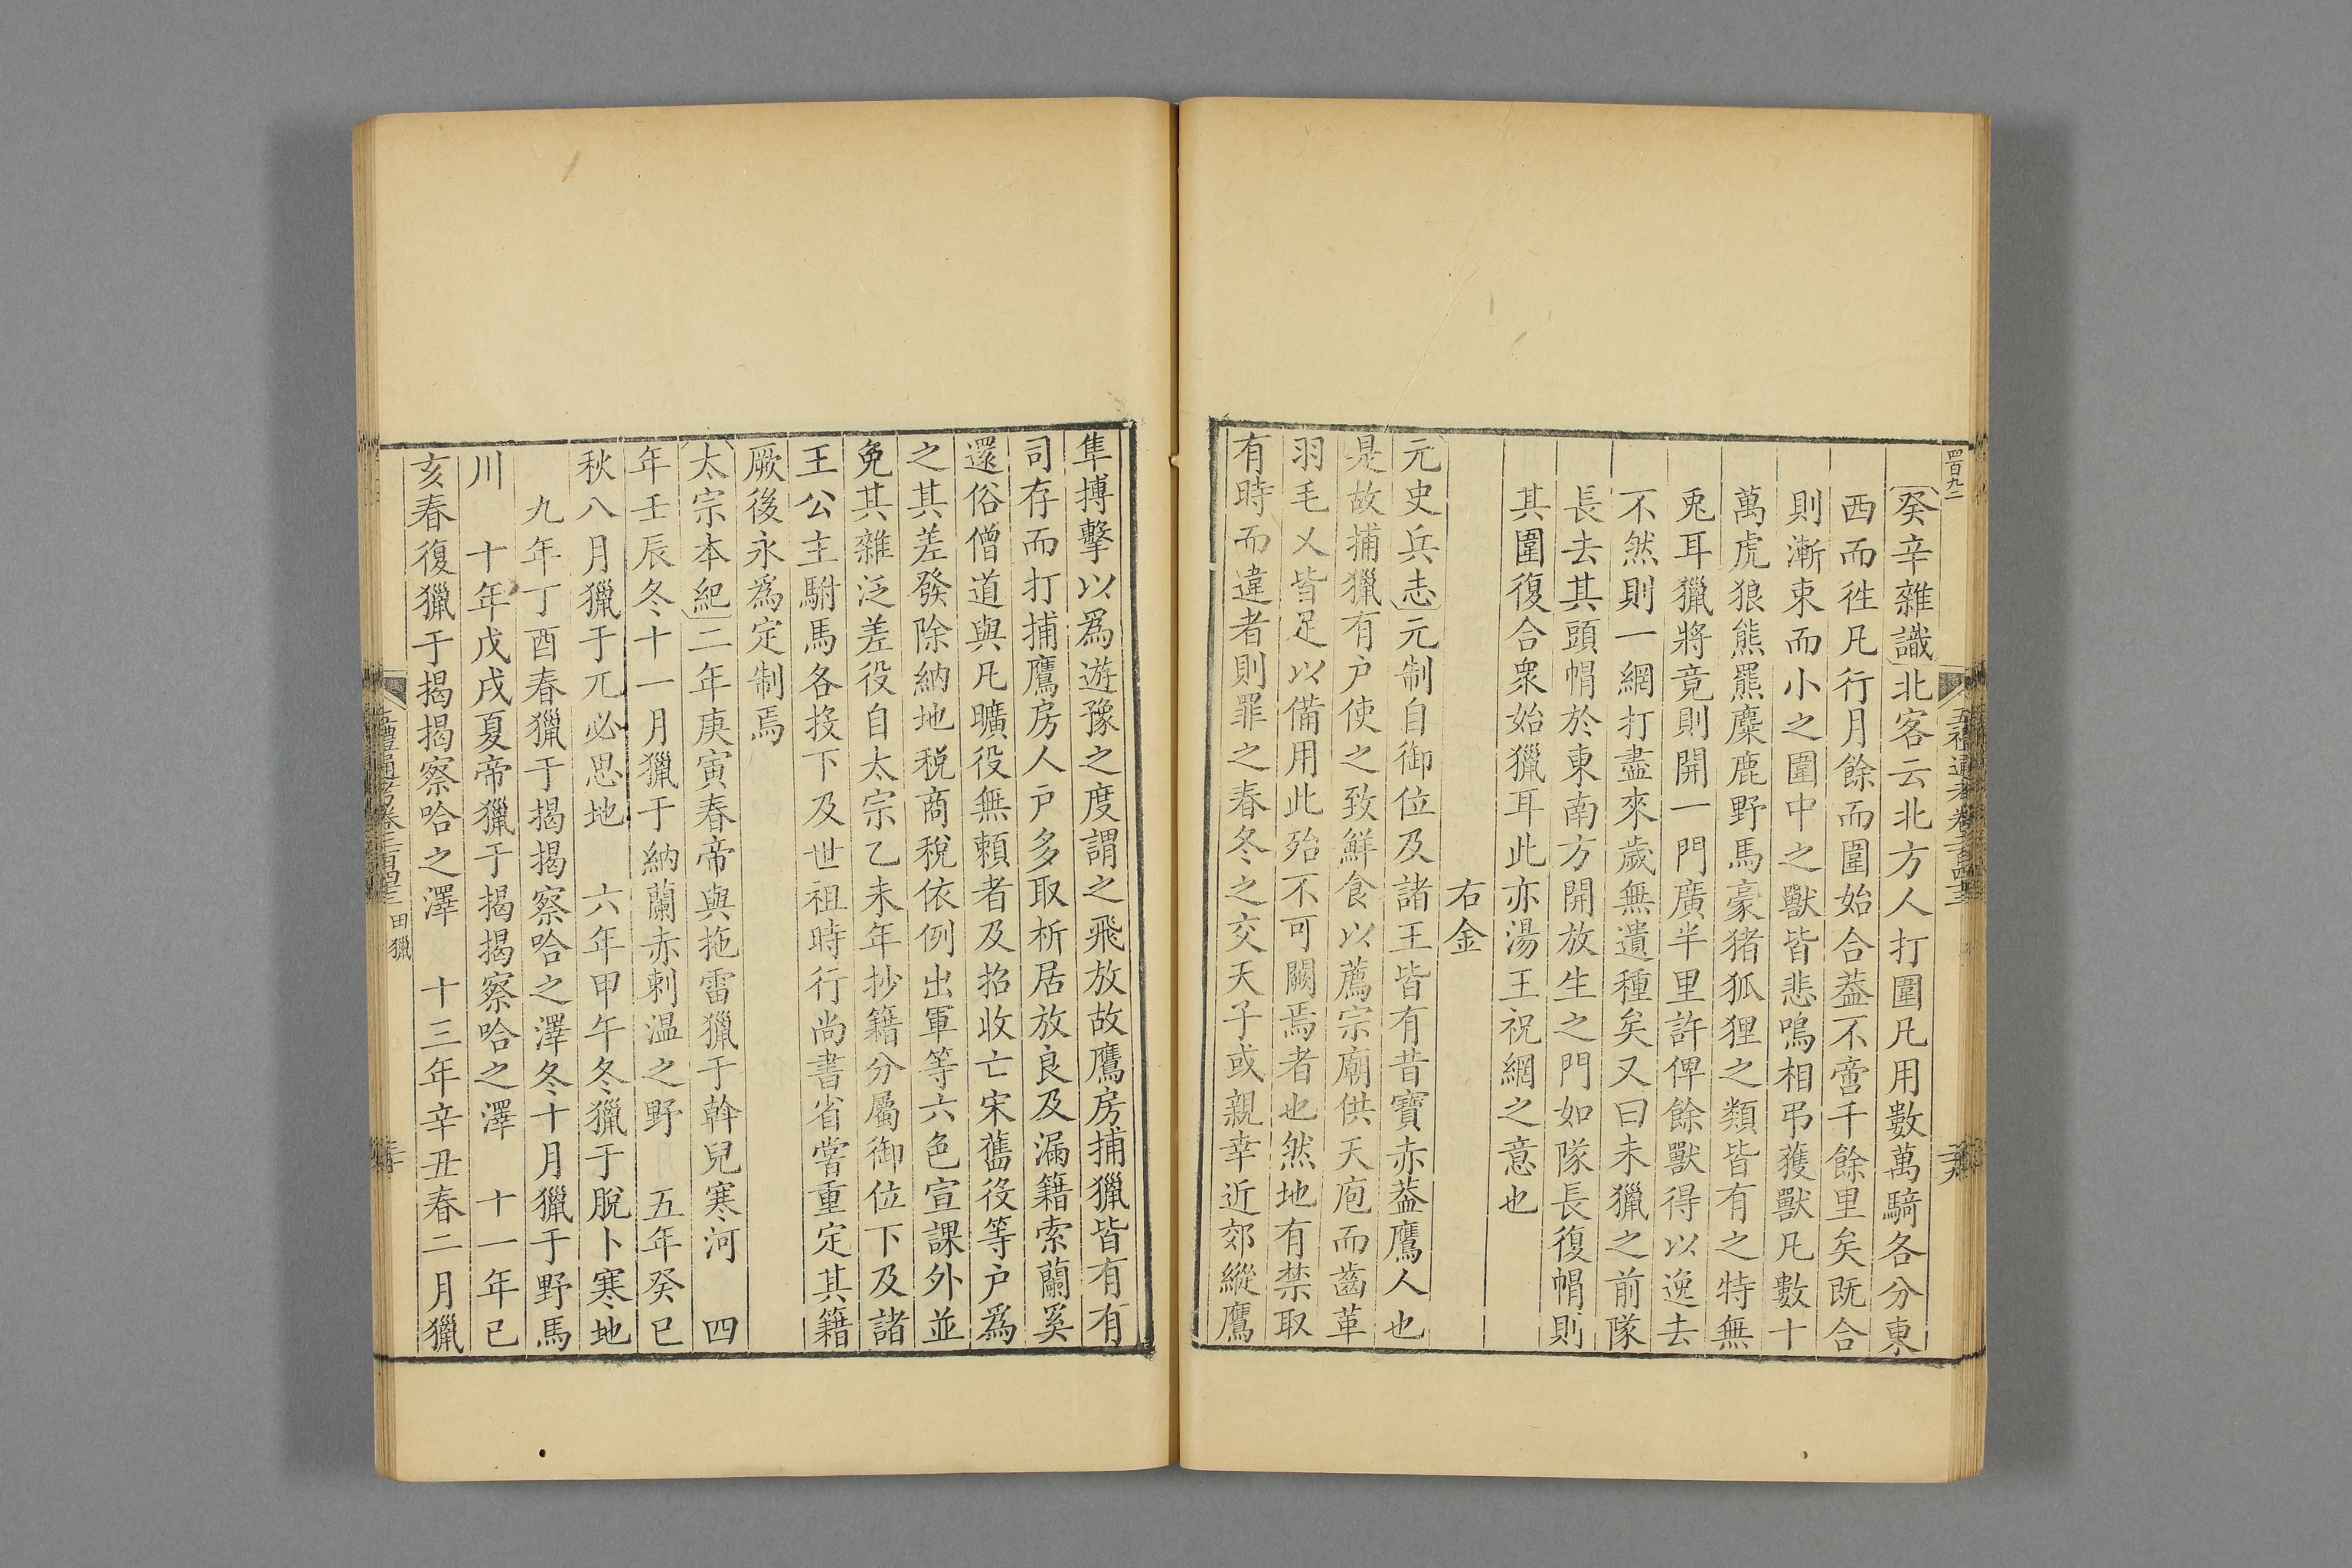 四百九二
癸辛雜識北客云北方人打圍凡用數萬騎各分東
西而徃凡行月餘而圍始合葢不啻千餘里矣既合
則漸束而小之圍中之獸皆悲鳴相弔獲獸凡數十
萬虎狼熊羆麋鹿野馬豪猪狐狸之類皆有之特無
兎耳獵將竟則開一門廣半里許俾餘獸得以逸去
不然則一網打盡來歲無遺種矣又曰未獵之前隊
長去其頭帽於東南方開放生之門如隊長復帽則
其圍復合衆始獵耳此亦湯王祝網之意也
右金
元史兵志元制自御位及諸王皆有昔寶赤葢鷹人也
是故捕獵有户使之致鮮食以薦宗廟供天庖而齒革
羽毛又皆足以備用此殆不可闕焉者也然地有禁取
有時而違者則罪之春冬之交天子或親幸近郊縱鷹
隼搏擊以爲遊豫之度謂之飛放故鷹房捕獵皆有有
司存而打捕鷹房人户多取析居放良及漏籍索蘭奚
還俗僧道與凡曠役無賴者及招收亡宋舊役等户爲
之其差發除納地稅商稅依例出軍等六色宣課外並
免其雜泛差役自太宗乙未年抄籍分屬御位下及諸
王公主駙馬各投下及世祖時行尚書省嘗重定其籍
厥後永爲定制焉
太宗本紀二年庚寅春帝與拖雷獵于斡兒寒河　四
年壬辰冬十一月獵于納蘭赤剌温之野　五年癸巳
秋八月獵于兀必思地　六年甲午冬獵于脫卜寒地
九年丁酉春獵于揭揭察哈之澤冬十月獵于野馬
川　十年戊戌夏帝獵于揭揭察哈之澤　十一年己
亥春復獵于揭揭察哈之澤　十三年辛丑春二月獵
田獵